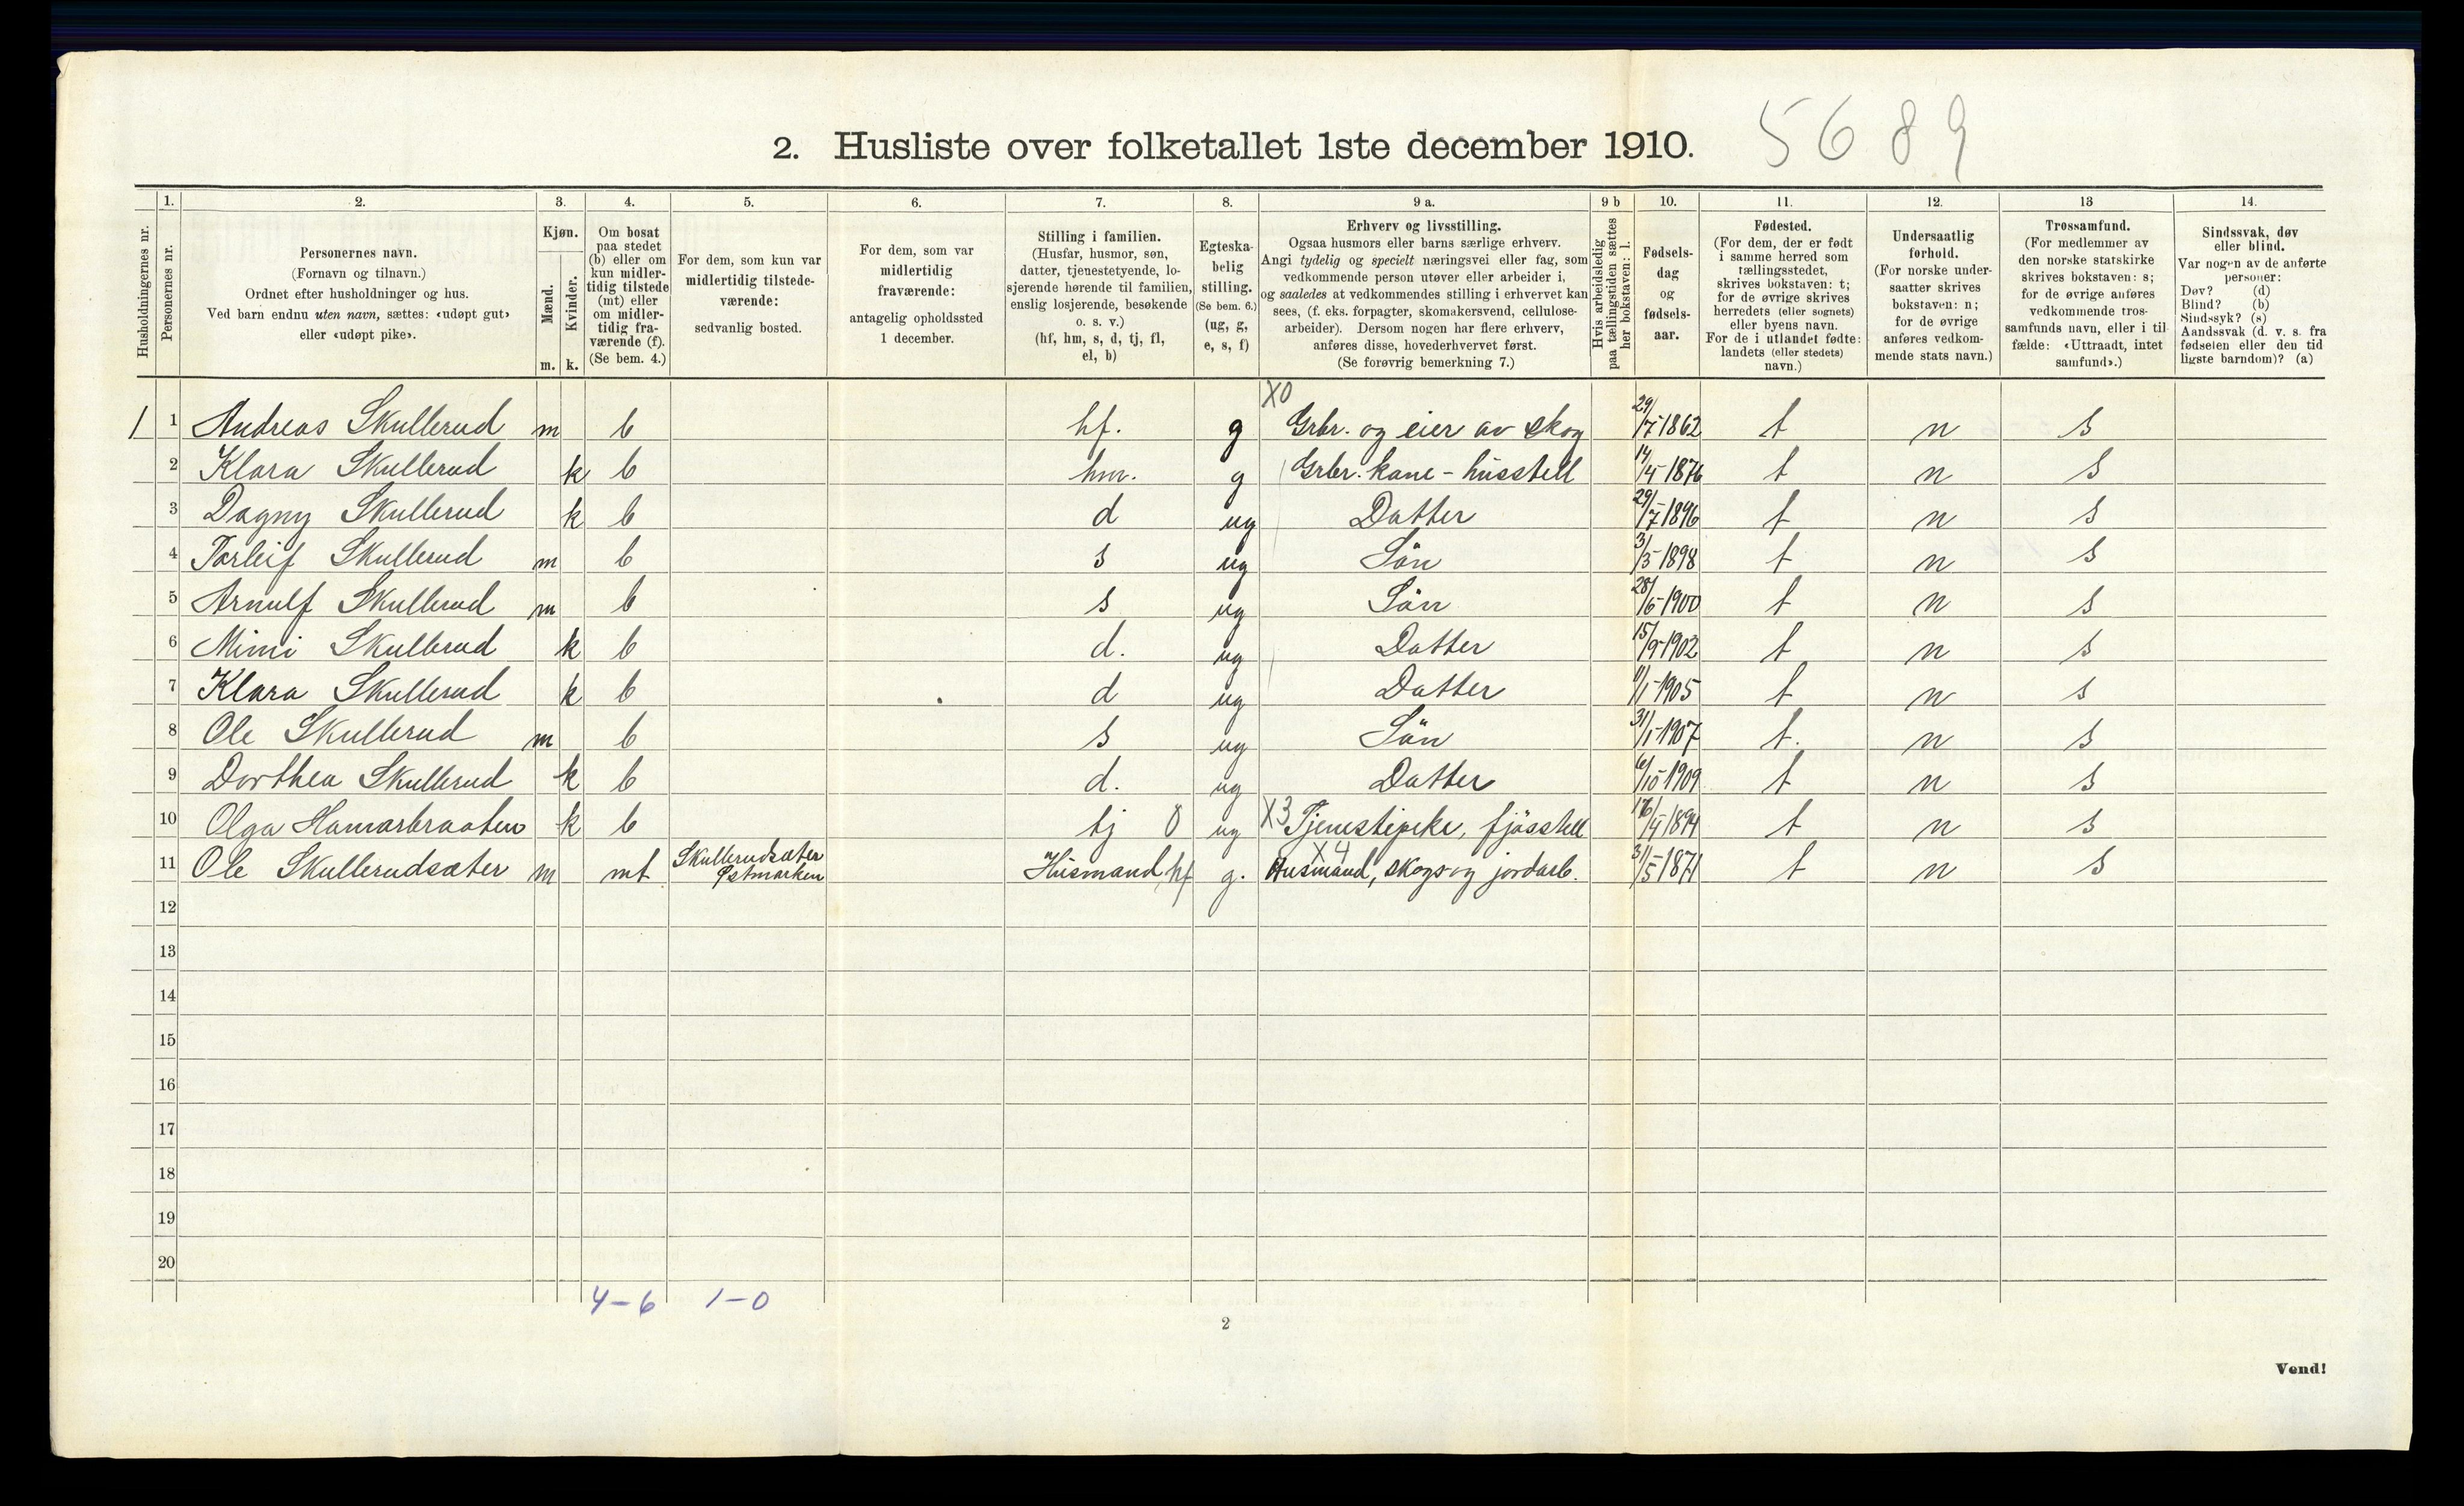 2. Husliste over folketallet 1ste december 1910. 5689
1. 2. 3. 4. 5. 6. 7. 8. 9 a. 9 b 10. 11. 12. 13 14.
Husholdningernes nr.
Personernes nr.
Personernes navn.
(Fornavn og tilnavn.)
Ordnet efter husholdninger og hus.
Ved barn endnu uten navn, sættes: «udøpt gut»
eller «udøpt pike».
Kjøn.
Mænd.
Kvinder.
m. k.
Om bosat
paa stedet
(b) eller om
kun midler-
tidig tilstede
(mt) eller
om midler-
tidig fra-
værende (f).
(Se bem. 4.)
For dem, som kun var
midlertidig tilstede-
værende:
sedvanlig bosted.
For dem, som var
midlertidig
fraværende:
antagelig opholdssted
1 december.
Stilling i familien.
(Husfar, husmor, søn,
datter, tjenestetyende, lo-
sjerende hørende til familien,
enslig losjerende, besøkende
o. s. v.)
(hf, hm, s, d, tj, fl,
el, b)
Egteska-
belig
stilling.
(Se bem. 6.)
(ug, g,
e, s, f)
Erhverv og livsstilling.
Ogsaa husmors eller barns særlige erhverv.
Angi tydelig og specielt næringsvei eller fag, som
vedkommende person utøver eller arbeider i,
og saaledes at vedkommendes stilling i erhvervet kan
sees, (f. eks. forpagter, skomakersvend, cellulose-
arbeider). Dersom nogen har flere erhverv,
anføres disse, hovederhvervet først.
(Se forøvrig bemerkning 7.)
Hvis arbeidsledig
paa tællingstiden sættes
her bokstaven: l.
Fødsels-
dag
og
fødsels-
aar.
Fødested.
(For dem, der er født
i samme herred som
tællingsstedet,
skrives bokstaven: t;
for de øvrige skrives
herredets (eller sognets)
eller byens navn.
For de i utlandet fødte:
landets (eller stedets)
navn.)
Undersaatlig
forhold.
(For norske under-
saatter skrives
bokstaven: n;
for de øvrige
anføres vedkom-
mende stats navn.)
Trossamfund.
(For medlemmer av
den norske statskirke
skrives bokstaven: s;
for de øvrige anføres
vedkommende tros-
samfunds navn, eller i til-
fælde: «Uttraadt, intet
samfund».)
Sindssvak, døv
eller blind.
Var nogen av de anførte
personer:
Døv? (d)
Blind? (b)
Sindssyk? (s)
Aandssvak (d. v. s. fra
fødselen eller den tid-
ligste barndom)? (a)
X0
1 1 Andreas Skullerud m b hf. g Grbr. og eier av skog 29/7 1862 t n s
2 Klara Skullerud k b hm. g Grbr. kone - husstell 14/4 1876 t n s
3 Dagny Skullerud k b d ug Datter 29/7 1896 t n s
4 Torleif Skullerud m b s ug Sön 3/5 1898 t n s
5 Arnulf Skullerud m b s ug Sön 28/6 1900 t n s
6 Mimi Skullerud k b d. ug Datter 15/9 1902 t n s
7 Klara Skullerud k b d ug Datter 11/1 1905 t n s
8 Ole Skullerud m b s ug Sön 31/1 1907 t. n s
9 Dorthea Skullerud k b d. ug Datter 6/10 1909 t n s
10 Olga Hamarbraaten k b tj 0 ug X3 Tjenestepike, fjösstell 1894 t n s
11 Ole Skullerudsæter m mt Skullerudsæter Østmarken Husmand hf g. X4 Husmand, skogs og jordarb. 31/5 1871 t n s
12
13
14
15
16
17
18
19
20
4-6 1-0
2
Vend!